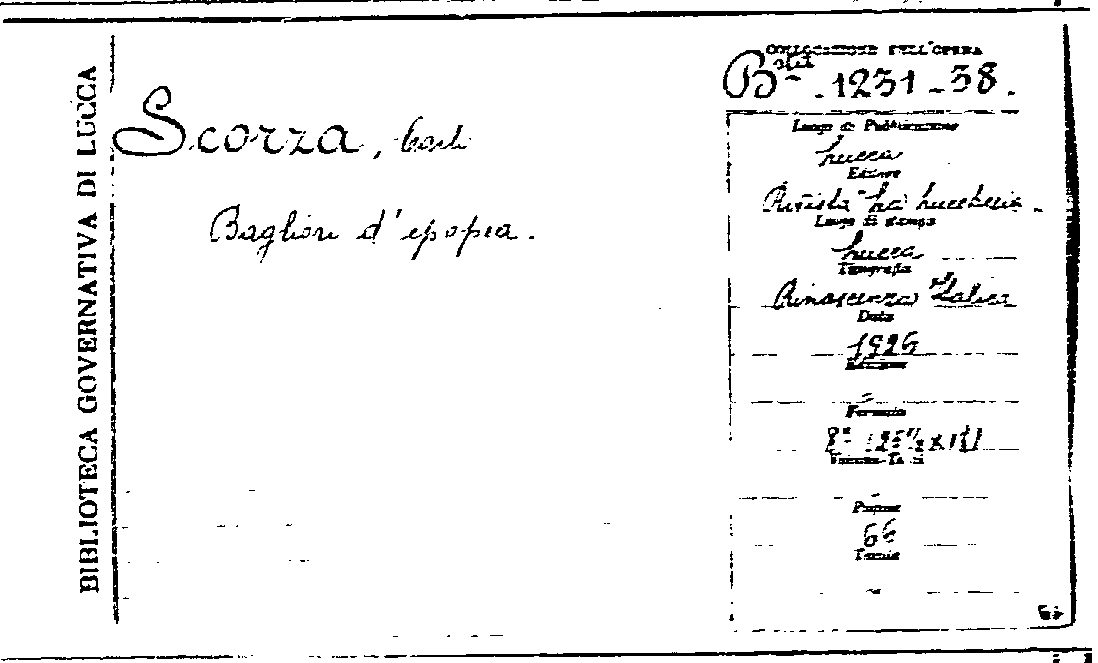 BIBLIOTECA GOVERNATIVA DI LUCCA
Scorza, Carlo
Bagliori d'epopea.
COLLOCAZIONE DELL'OPERA
B.ta - 1231 - 38.
Luogo di Pubblicazione
Lucca
Editore
Rivista "La Lucchesia" -
Luogo di stampa
Lucca
Tipografia
Rinascenza Italica
Data
1926
Edizione
Formato
8°
Pagine
66
Tomi